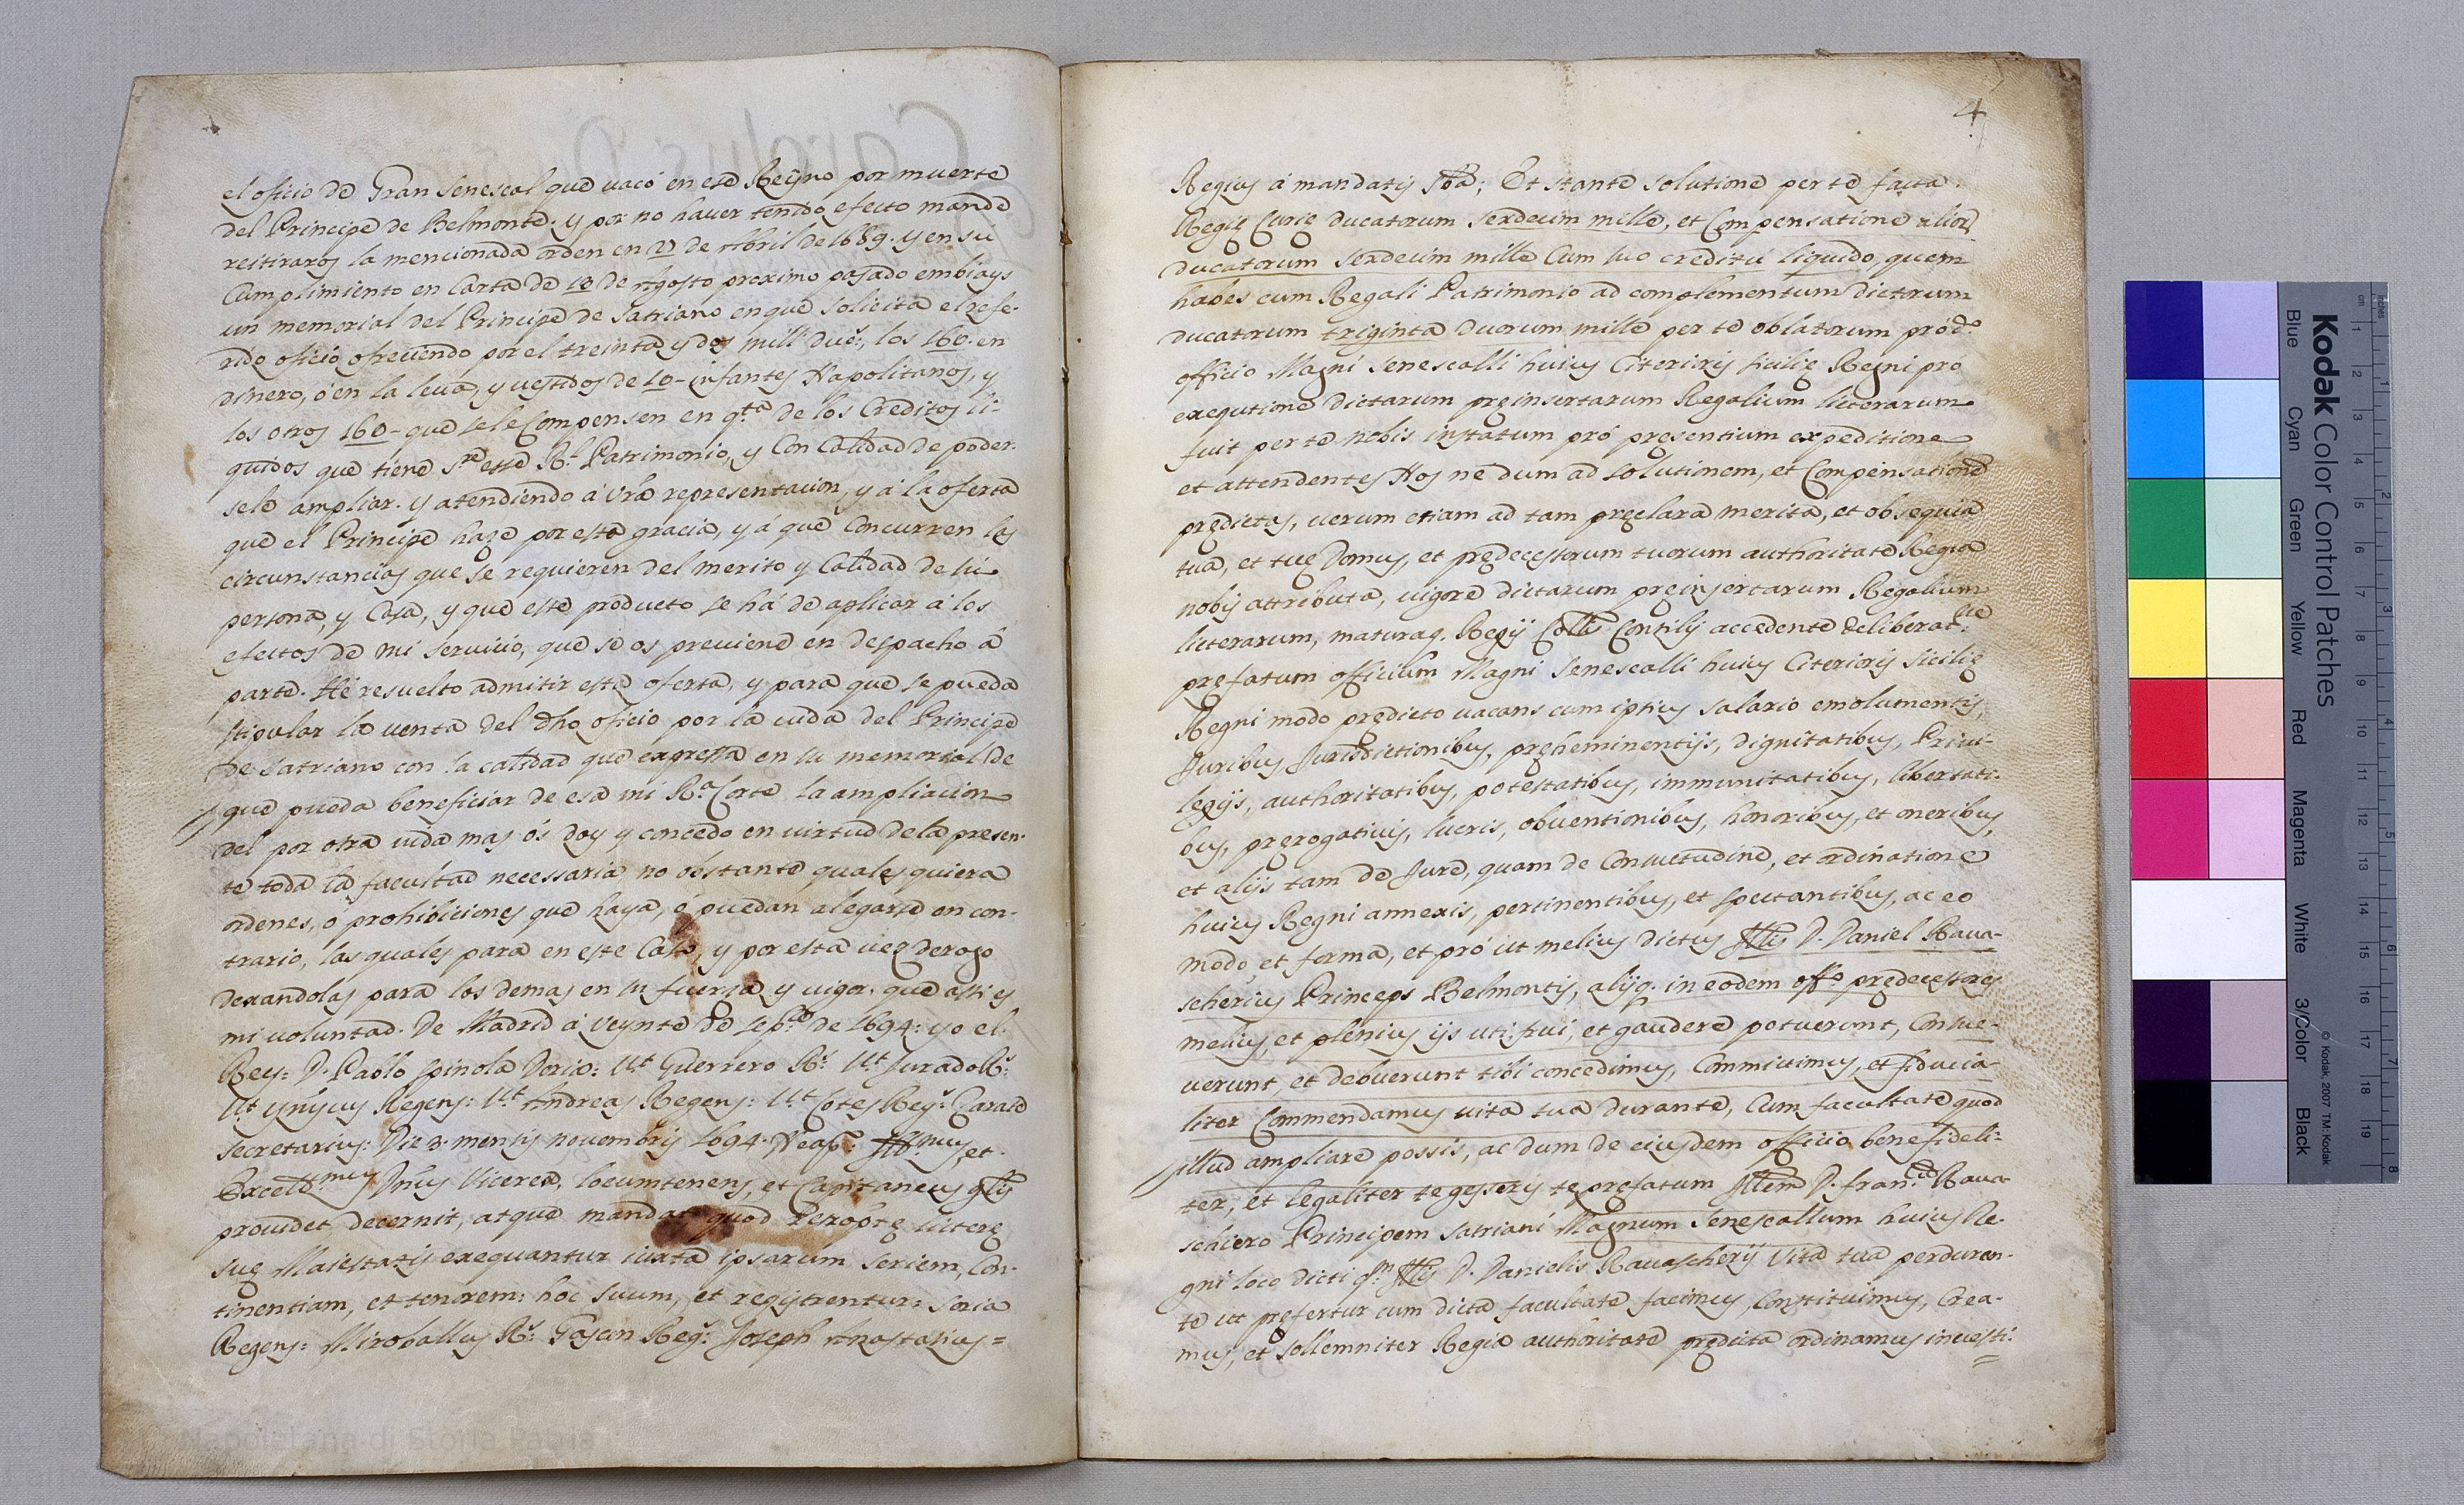 el oficio de Gran Senescal que vacó en ese Reyno por muerte
del Principe de Belmonte. y por no haver tenido efecto mandé
reitiraros la mencionada orden en 21 de Abril de 1689. y en su
Cumplimiento en Carta de 18 de Agosto proximo pasado embiays
un memorial del Principe de Satriano en que solicita el refe-
rido oficio ofreciendo por el treinta y dos mill duc.s, los 16 en
dinero, ó en la leva, y vestidos de infantes Napolitanos, y
los otros 16 que se le Compensen en q.ta de los Creditos li-
quidos que tiene s.re esse R.l Patrimonio, y Con Calidad de poder-
sele ampliar. y atendiendo á Vrã representacion, y á la oferta
que el Principe haze por esta gracia, y á que Concurren las
circunstancias que se requieren del merito y Calidad de su
persona, y Casa, y que este producto se há de aplicar a los
efectos de mi servicio, que se os previene en despacho á
parte. Hé resuelto admitir esta oferta, y para que se pueda
stipular la venta del dho oficio por la vida del Principe
de Satriano con la calidad que expressa en su memorial de
que pueda beneficiar de esa mi R.a Corte la ampliacion
del por otra vida mas ós doy y concedo en virtud de la presen-
te toda la facultad necessaria no obstante quales quiera
ordenes, ó prohibiciones que haya, ó puedan alegarse en con-
trario, las quales para en este Caso, y por esta vez derogo
dexandolas para los demas en su fuerza y vigor. que assi es
mi voluntad. De Madrid á Veynte de Sep.re de 1694: yo el
Rey: D. Pablo Spinola Doria: V.t Guerrero R.s V.t Jurado R.s
V.t Regens: V.t Andreas Regens: V.t Cotes Reg.s
Secretarius: Die 3. mensis novembris 1694. Neap.:  et
Excell.mus Dñus Vicerex, locumtenens, et Capitaneus glis
providet, decernit, atque mandat quod litere
sue Maiestatis exequantur iuxta ipsarum seriem, Con-
tinentiam, et tenorem: hoc suum, et registrentur: Soria
Regens: Miroballus R.s Gascon Reg.s Joseph Anastasius =
4
Regius á mandatis Et stante solutione per te facta
Regie Curie ducatorum sexdecim mille, et Compensatione alior
ducatorum sexdecim mille Cum tuo creditu liquido, quem
habes cum Regali Patrimonio ad complementum dictorum
ducatorum triginta duorum mille per te oblatorum pró d.o
officio Magni Senescalli huius Citerioris Sicilie Regni pró
exequtione dictarum preinsertarum Regalium litterarum
fuit per te nobis instatum pró presentium expeditione
et attendentes Nos ne dum ad solutionem, et Compensatione
predictas, verum etiam ad tam preclara merita, et obsequia
tua, et tue Domus, et predecessorum tuorum authoritate Regia
nobis attributa, vigore dictarum preinsertarum Regalium
litterarum, maturaq. Regij Collis Consilij accedente deliberat.ne
prefatum officium Magni Senescalli huius Citerioris Sicilie
Regni modo predicto vacans cum ipsius salario emolumentis,
Juribus Jurisdictionibus, preheminentijs, dignitatibus, Privi-
legijs, authoritatibus, potestatibus, immunitatibus, libertati-
bus, prerogativis, lucris, obventionibus, honoribus, et oneribus,
et alijs tam de Jure, quam de Consuetudine, et ordinatione
huius Regni annexis, pertinentibus, et spectantibus, ac eo
modo, et forma, et pró ut melius dictus Illis D. Daniel Rava-
scherius Princeps Belmontis, alijq. in eodem off.o predecessores
melius, et plenius ijs uti, frui, et gaudere potuerunt, Consue-
verunt, et debuerunt tibi concedimus, Commitimus, et fiducia-
liter Commendamus vita tua durante, Cum facultate quod
illud ampliare possis, ac dum de eiusdem officio bene fideli-
ter, et legaliter te gesseris te prefatum Illem D. fran.cũ Rava-
schiero Principem Satriani Magnum Senescallum huius Re-
gni loco dicti q.m Illis D. Danielis Ravascherij Vita tua perduran-
te ut prefertur cum dicta facultate facimus, Constituimus, Crea-
mus, et sollemniter Regia authoritate predicta ordinamus investi-
Kodak Color Control Patches
Blue Cyan Green Yellow Red Magenta White 3/Color Black
© Kodak 2007 TM: Kodak
inches 1 2 3 4 5 6 7 8
cm 1 2 3 4 5 6 7 8 9 10 11 12 13 14 15 16 17 18 19
Napoletana di Storia Patria